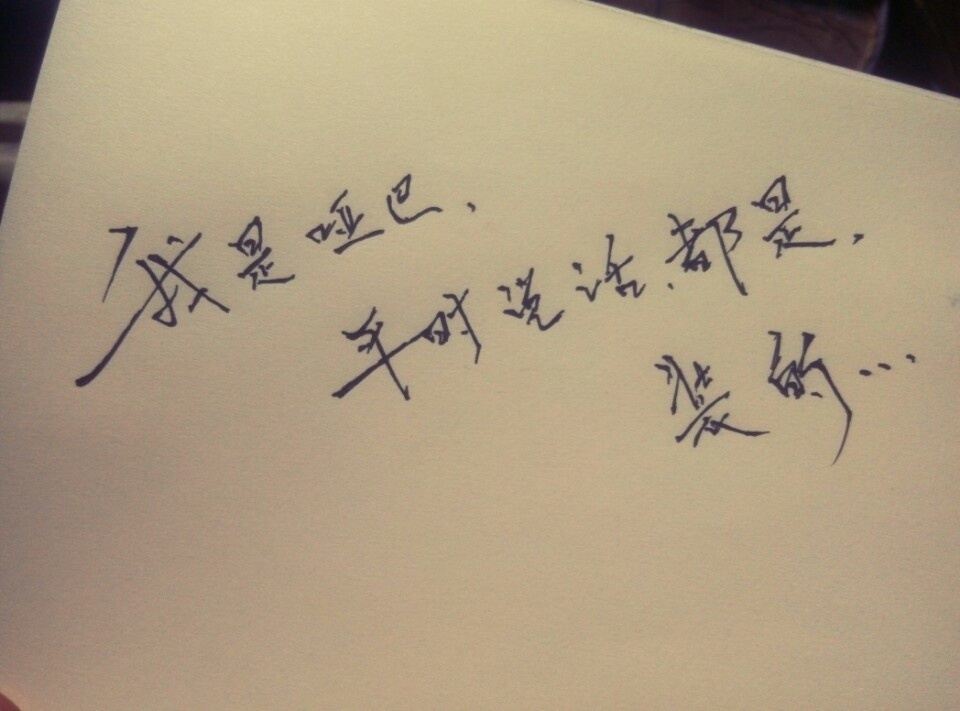 我是哑巴、
平时说话、都是、
装的…